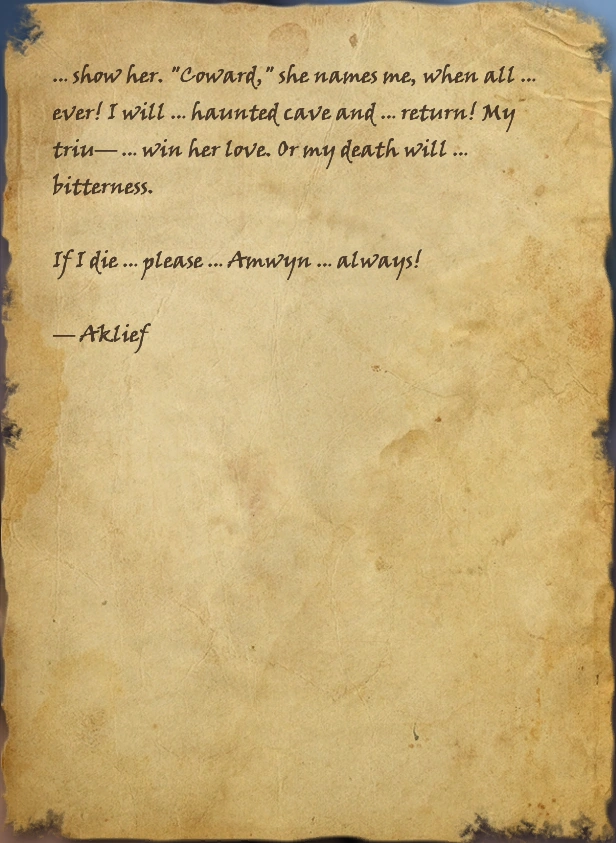 ... show her. "Coward," she names me, when all ...
ever! I will ... haunted cave and ... return! My
triu— ... win her love. Or my death will ...
bitterness.
If I die ... please ... Amwyn ... always!
— Aklief